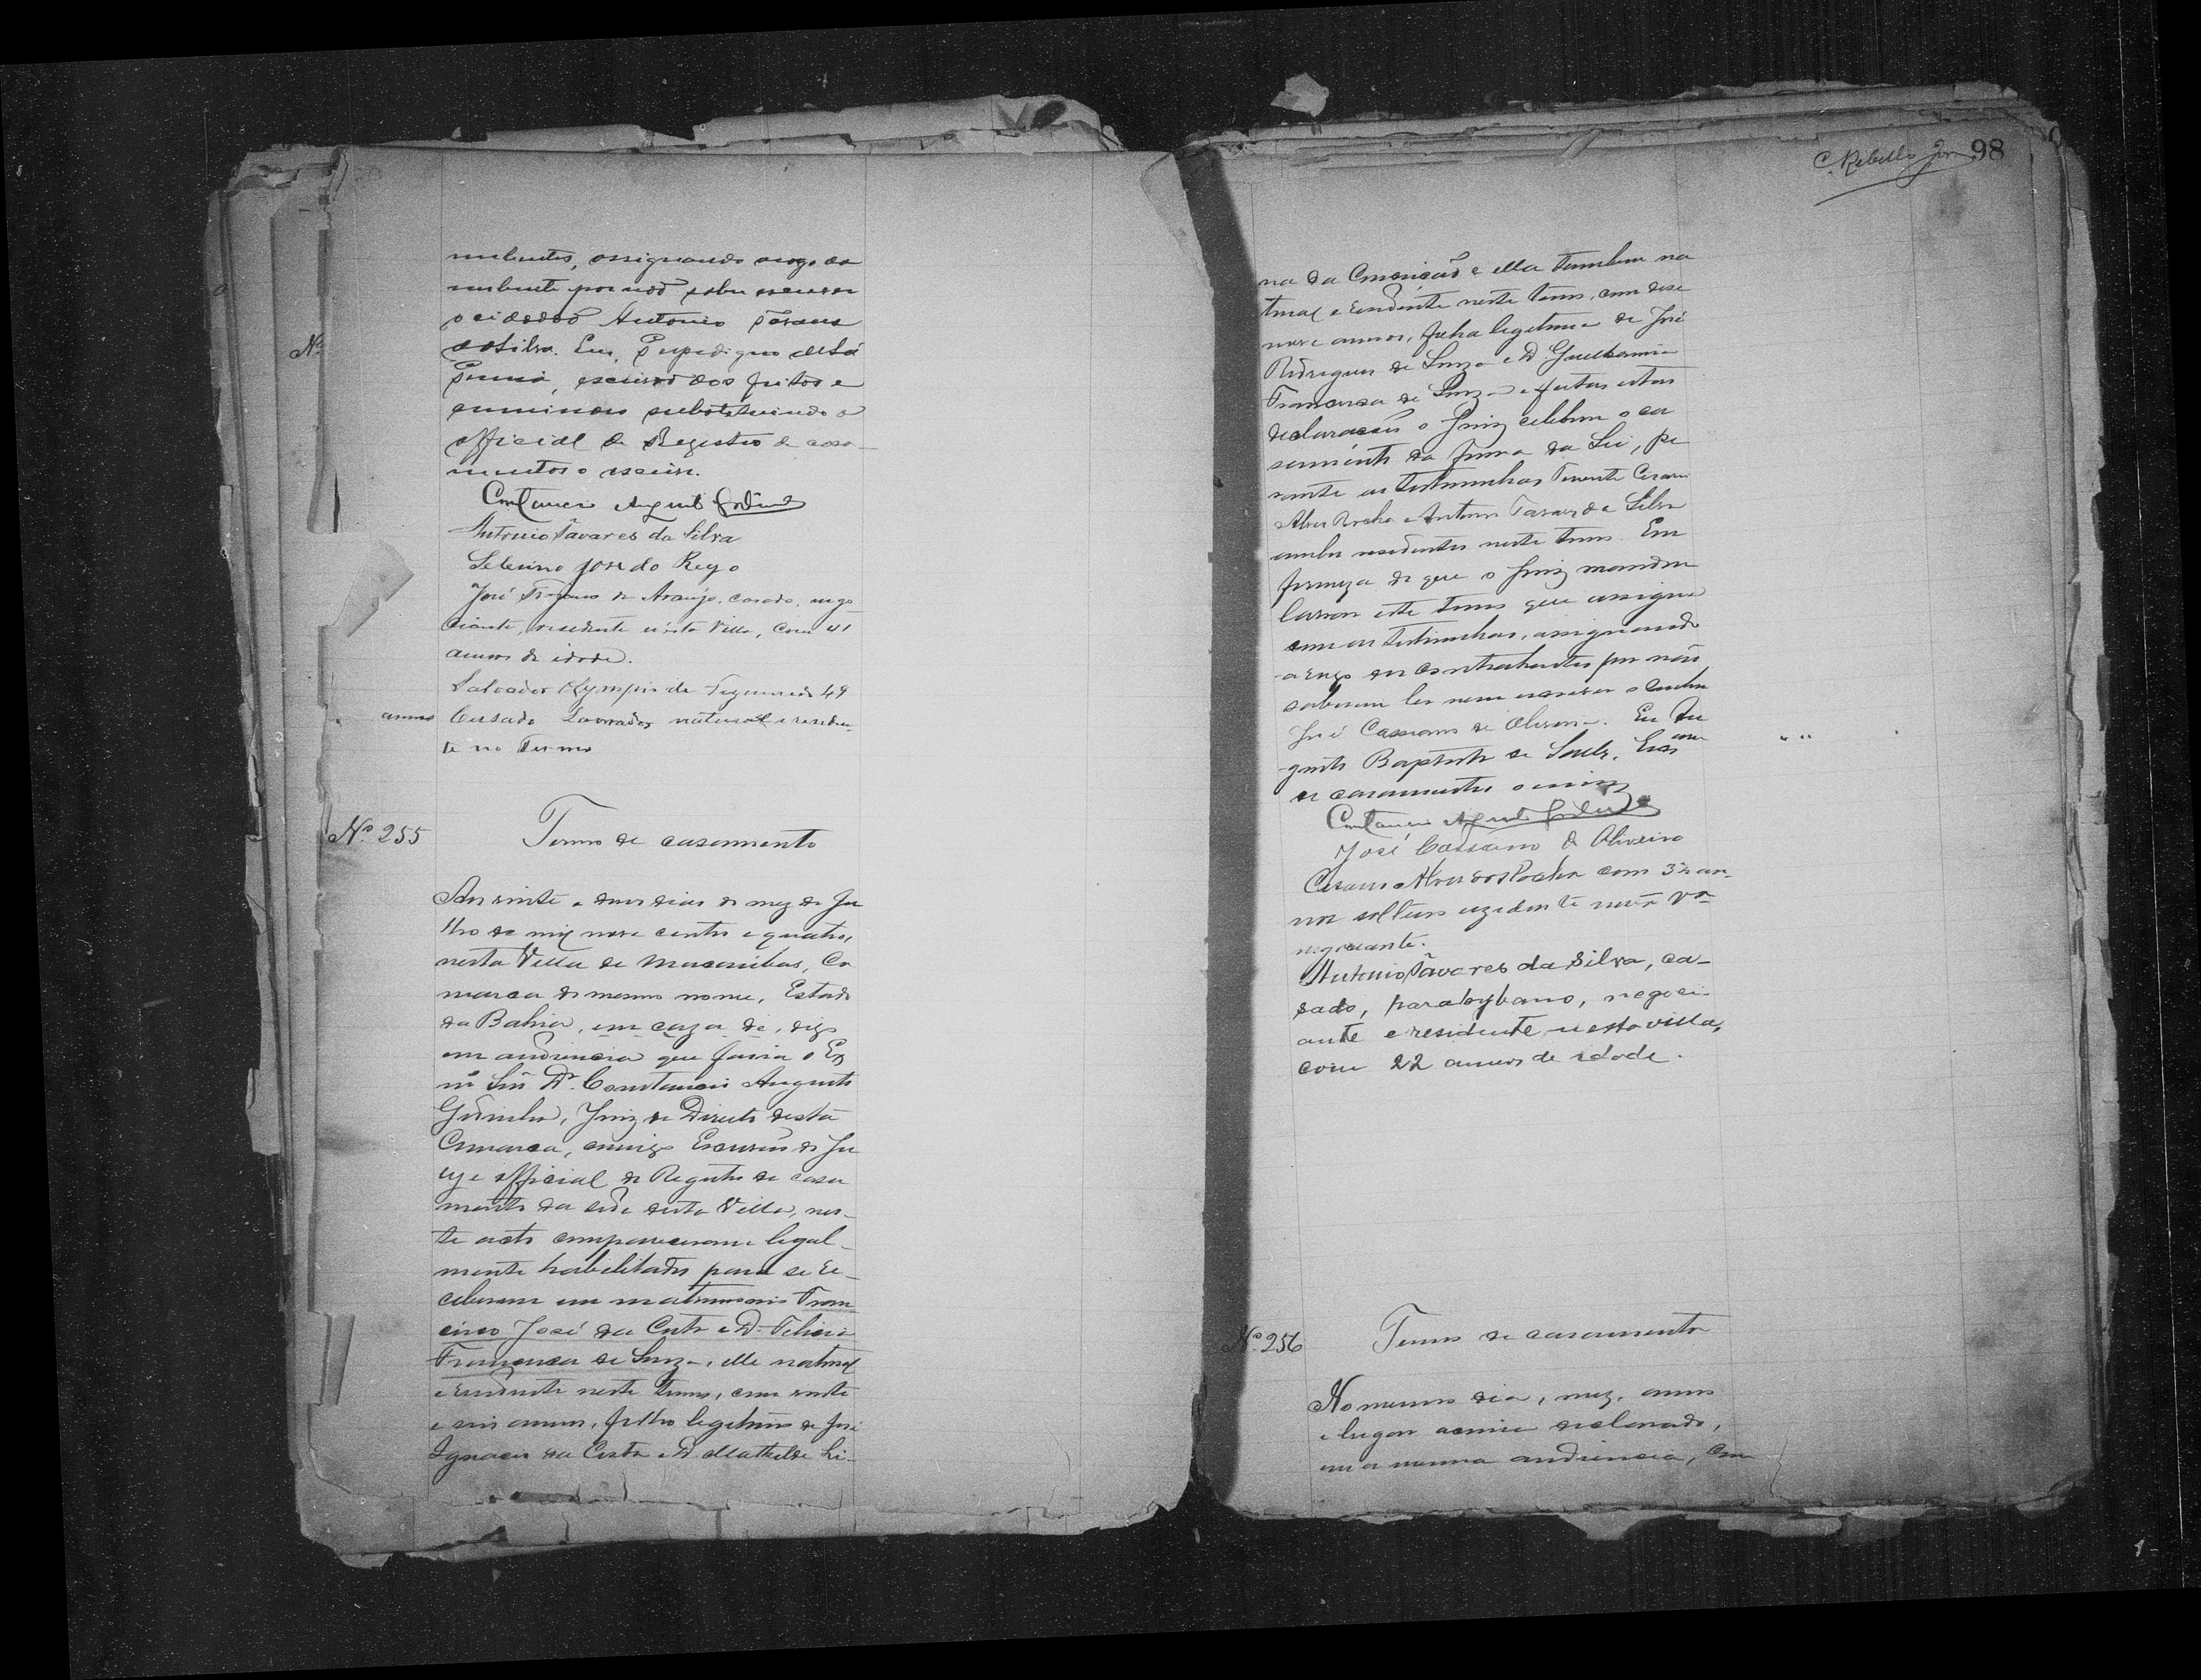 nubentes, assignando arogo da
nubente por não saber escrever
o cidadão Antonio Tavares
da Silva. Eu, de Sá
escrivão dos feitos e
substituindo o
official de Registro de casa-
mentos o escrevi.
Constancio Augusto Godinho
Antonio Tavares da Silva
José do Rego
José de Araujo, casado, nego-
ciante, residente n'esta Villa, com 41
annos de idade.
Salvador Olympio de Figueredo 49
annos Casado Lavrador natural e residen-
te no Termo
Nº 255
Termo de casamento
Aos vinte e dous dias do mez de Ju
lho de mil nove centos e quatro,
nesta Villa de Macaúbas, Co
marca do mesmo nome, Estado
da Bahia, em caza de, digo
em audiencia que fasia o Ex
mº Snr Dr. Constancio Augusto
Godinho, Juiz de Direito desta
Comarca, comigo Escrivão do Ju
ry e official do Registro de casa
mento da séde desta Villa, nes-
te acto compareceram legal-
mente habilitados para se re-
ceberem em matrimonio Fran
cisco José da Costa e D. Felicia
Francisca de Souza, elle natural
e residente neste termo, com vinte
e seis annos, filho legitimo de José
Ignacio da Costa e D. Mathilde Li-
C. Rebello Jor 98
na da Conceição e ella tambem na
tural e residente neste termo, com dese
nove annos, filha legitima de José
Rodrigues de Souza e D. Guilhermina
Francisca de Souza e feitas estas
declarações o Juiz celebrou o ca
samento da forma da Lei, pe
rante as testemunhas Tenente Cesario
Alves Rocha e Antonio Tavares da Silva
ambos residentes neste termo. Em
firmeza do que o Juiz mandou
lavrar este termo que assigna
com as testemunhas, assignando
a rogo dos contrahentes por não
saberem ler nem escrever o cidadão
José Cassiano de Oliveira. Eu Au
gusto Baptista de Souza, Escrivam
de casamentos o escrevi
Constancio Augusto Godinho
José Cassiano de Oliveira
Cesario Alves dos Rocha com 32 an-
nos solteiro rezidente nesta Vª
negociante.
Antonio Tavares da Silva, ca-
sado, parahybano, negoci-
ante e residente nesta villa,
com 22 annos de idade.
Nº 256
Termo de casamento
No mesmo dia, mez, anno
e lugar acima declarado,
em a mesma audiencia, com